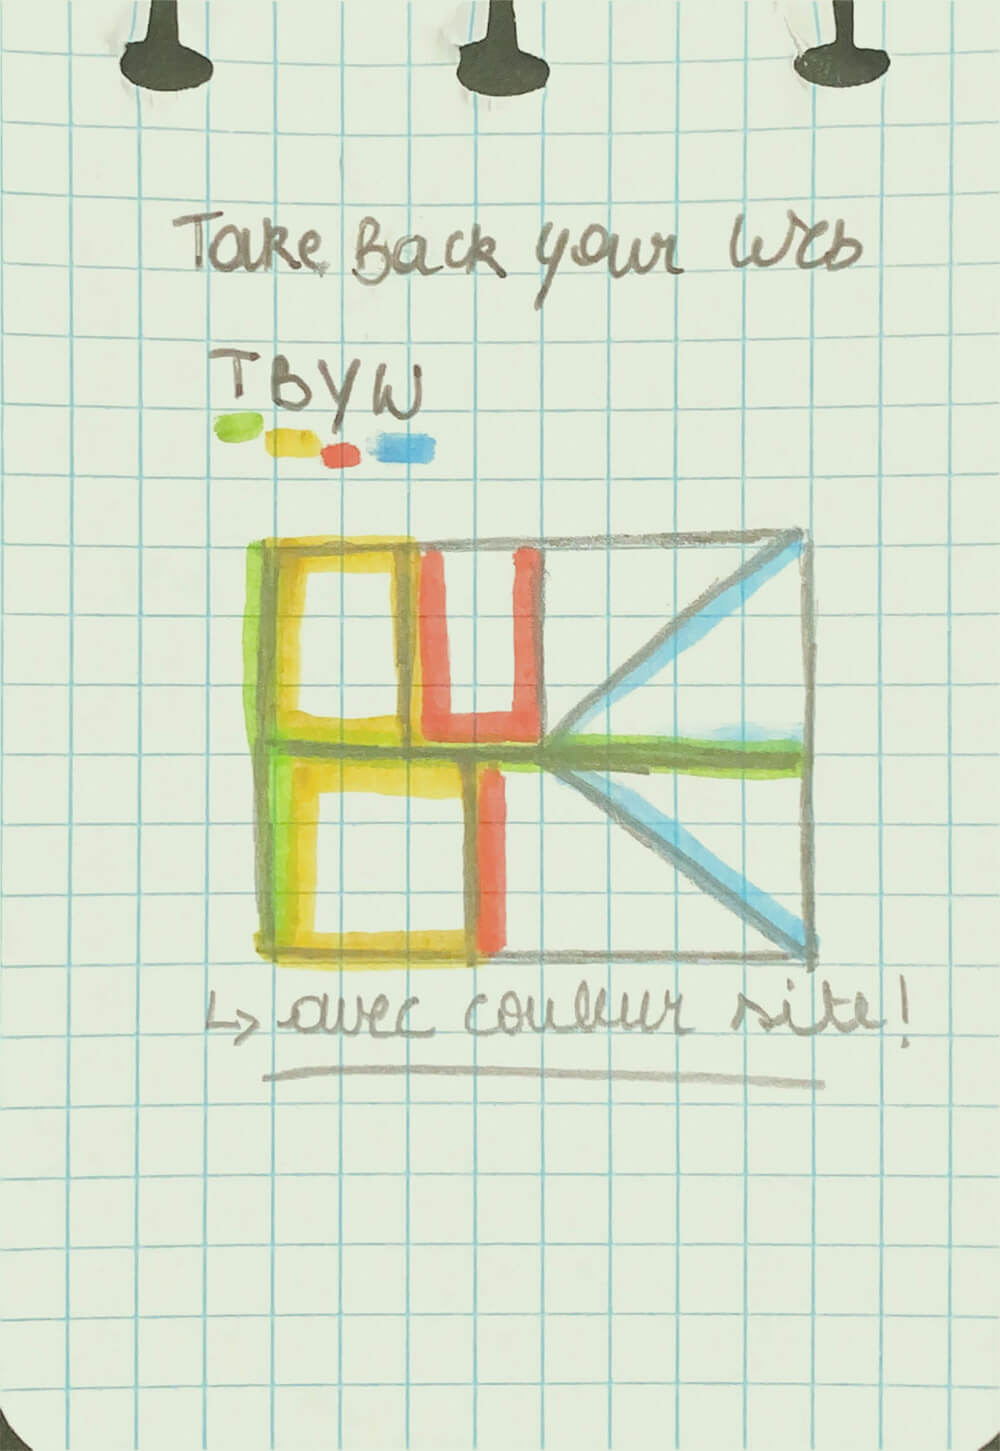 Take Back your Web
TBYW
↳ avec couleur site!